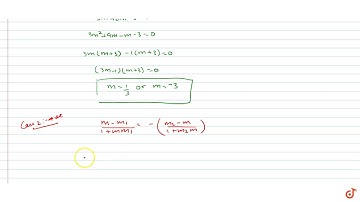 3m²+9m-m-3=0
3m(m+3)-1(m+3)=0
(3m-1)(m+3)=0
m=1/3 or m=-3
Case 2
(m-m₁)/(1+mm₁) = -((m₂-m)/(1+m₂m))